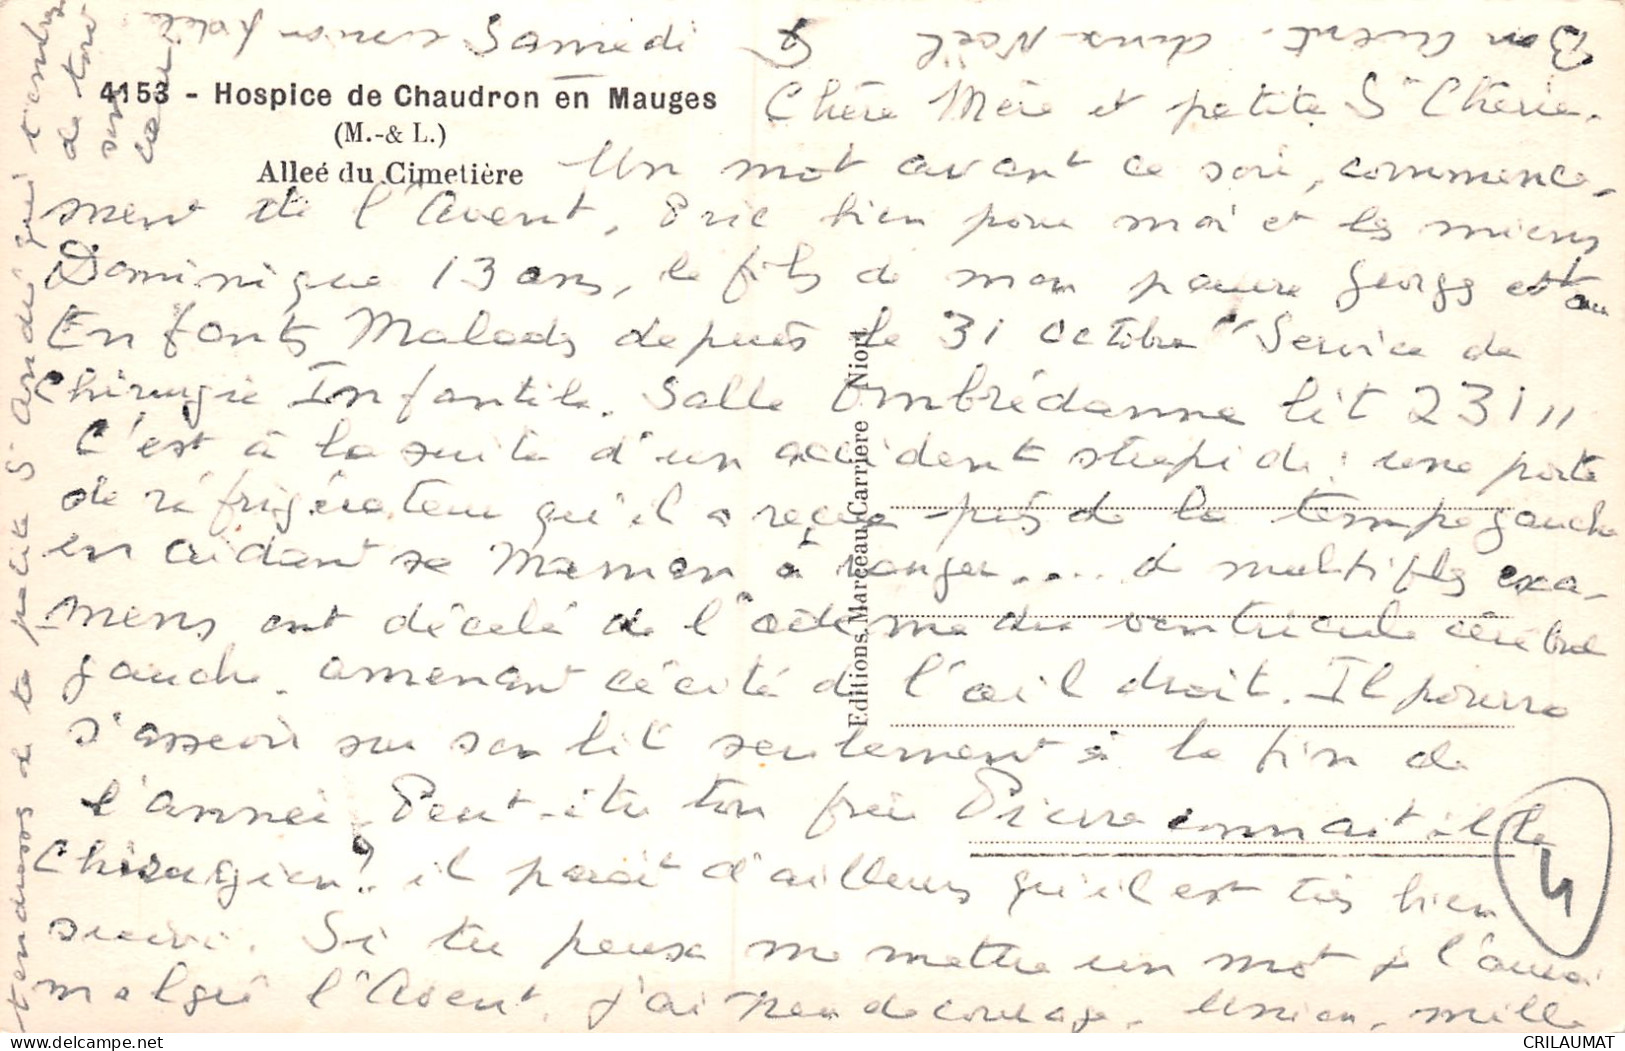 Samedi
4153 - Hospice de Chaudron en Mauges
(M.-& L.)
Alleé du Cimetière
Chère Mère et petite Sr Chérie.
Un mot avant ce soir, commence-
ment de l'Avent, Priez bien pour moi et les miens
Dominique 13 ans, le fils de mon pauvre Georges est aux
Enfants Malades depuis le 31 octobre "Service de
Chirurgie Infantile. Salle Ombrédanne lit 231"
C'est à la suite d'un accident stupide : une porte
de réfrigérateur qu'il a reçue près de la tempe gauche
en aidant sa Maman à ranger.... de multiples exa-
mens ont décelé de l'œdème du ventricule cérébral
gauche. amenant cécité de l'œil droit. Il pourra
s'asseoir sur son lit seulement à la fin de
l'année. Peut-être ton frère Pierre connait-il le
Chirurgien? il parait d'ailleurs qu'il est très bien
suivi. Si tu peux me mettre un mot
malgré l'Avent, j'ai peu de courage. Union, mille
tendresses de ta petite Sr André qui
Bon Avent. doux Noël
Editions Marceau Carriere Niort
4
CRILAUMAT